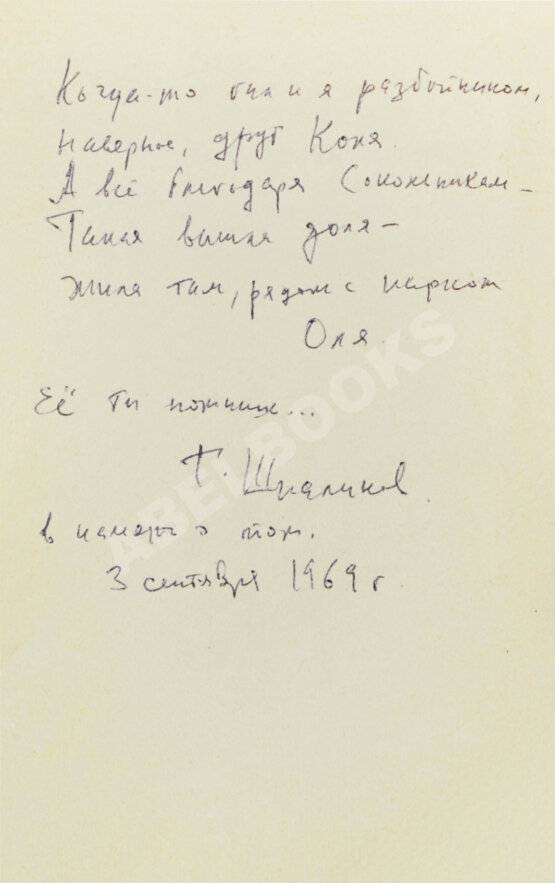 Когда-то был и я разбойником,
наверное, друг Коля.
А всё благодаря Сокольникам —
Такая вышла доля —
жила там, рядом с парком
Оля.
Её ты помнишь...
Г. Шпаликов
в память о том.
3 сентября 1969 г.
ABELBOOKS